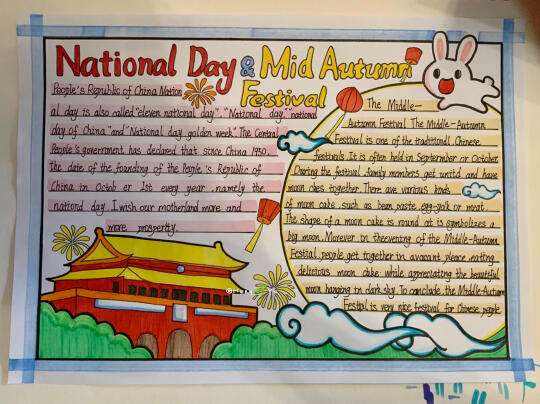 National Day & Mid Autumn
Festival
People's Republic of China Nation
al day is also called "eleven national day", "National day", "national
day of China" and "National day golden week". The Central
People's government has declared that since China 1950,
the date of the founding of the People's Republic of
China in Octob er 1st every year, namely the
nationd day. I wish our motherland more and
more prosperity.
The Middle-
Autumn Festival The Middle-Autumn
Festival is one of the traditional Chinese
festivals. It is often held in September or October
During the festival, family members get united and have
moon cakes together. There are various kinds
of moon cake such as bean paste, egg-yolk or meat
The shape of a moon cake is round as it symbolizes a
big moon. Moreover in the evening of the Middle-Autumn
Festival, people get together in a vacant place eating
delicious moon cake while appreciating the beautiful
moon hanging in dark sky. To conclude, the Middle-Autumn
Festival is very nice festival for Chinese people